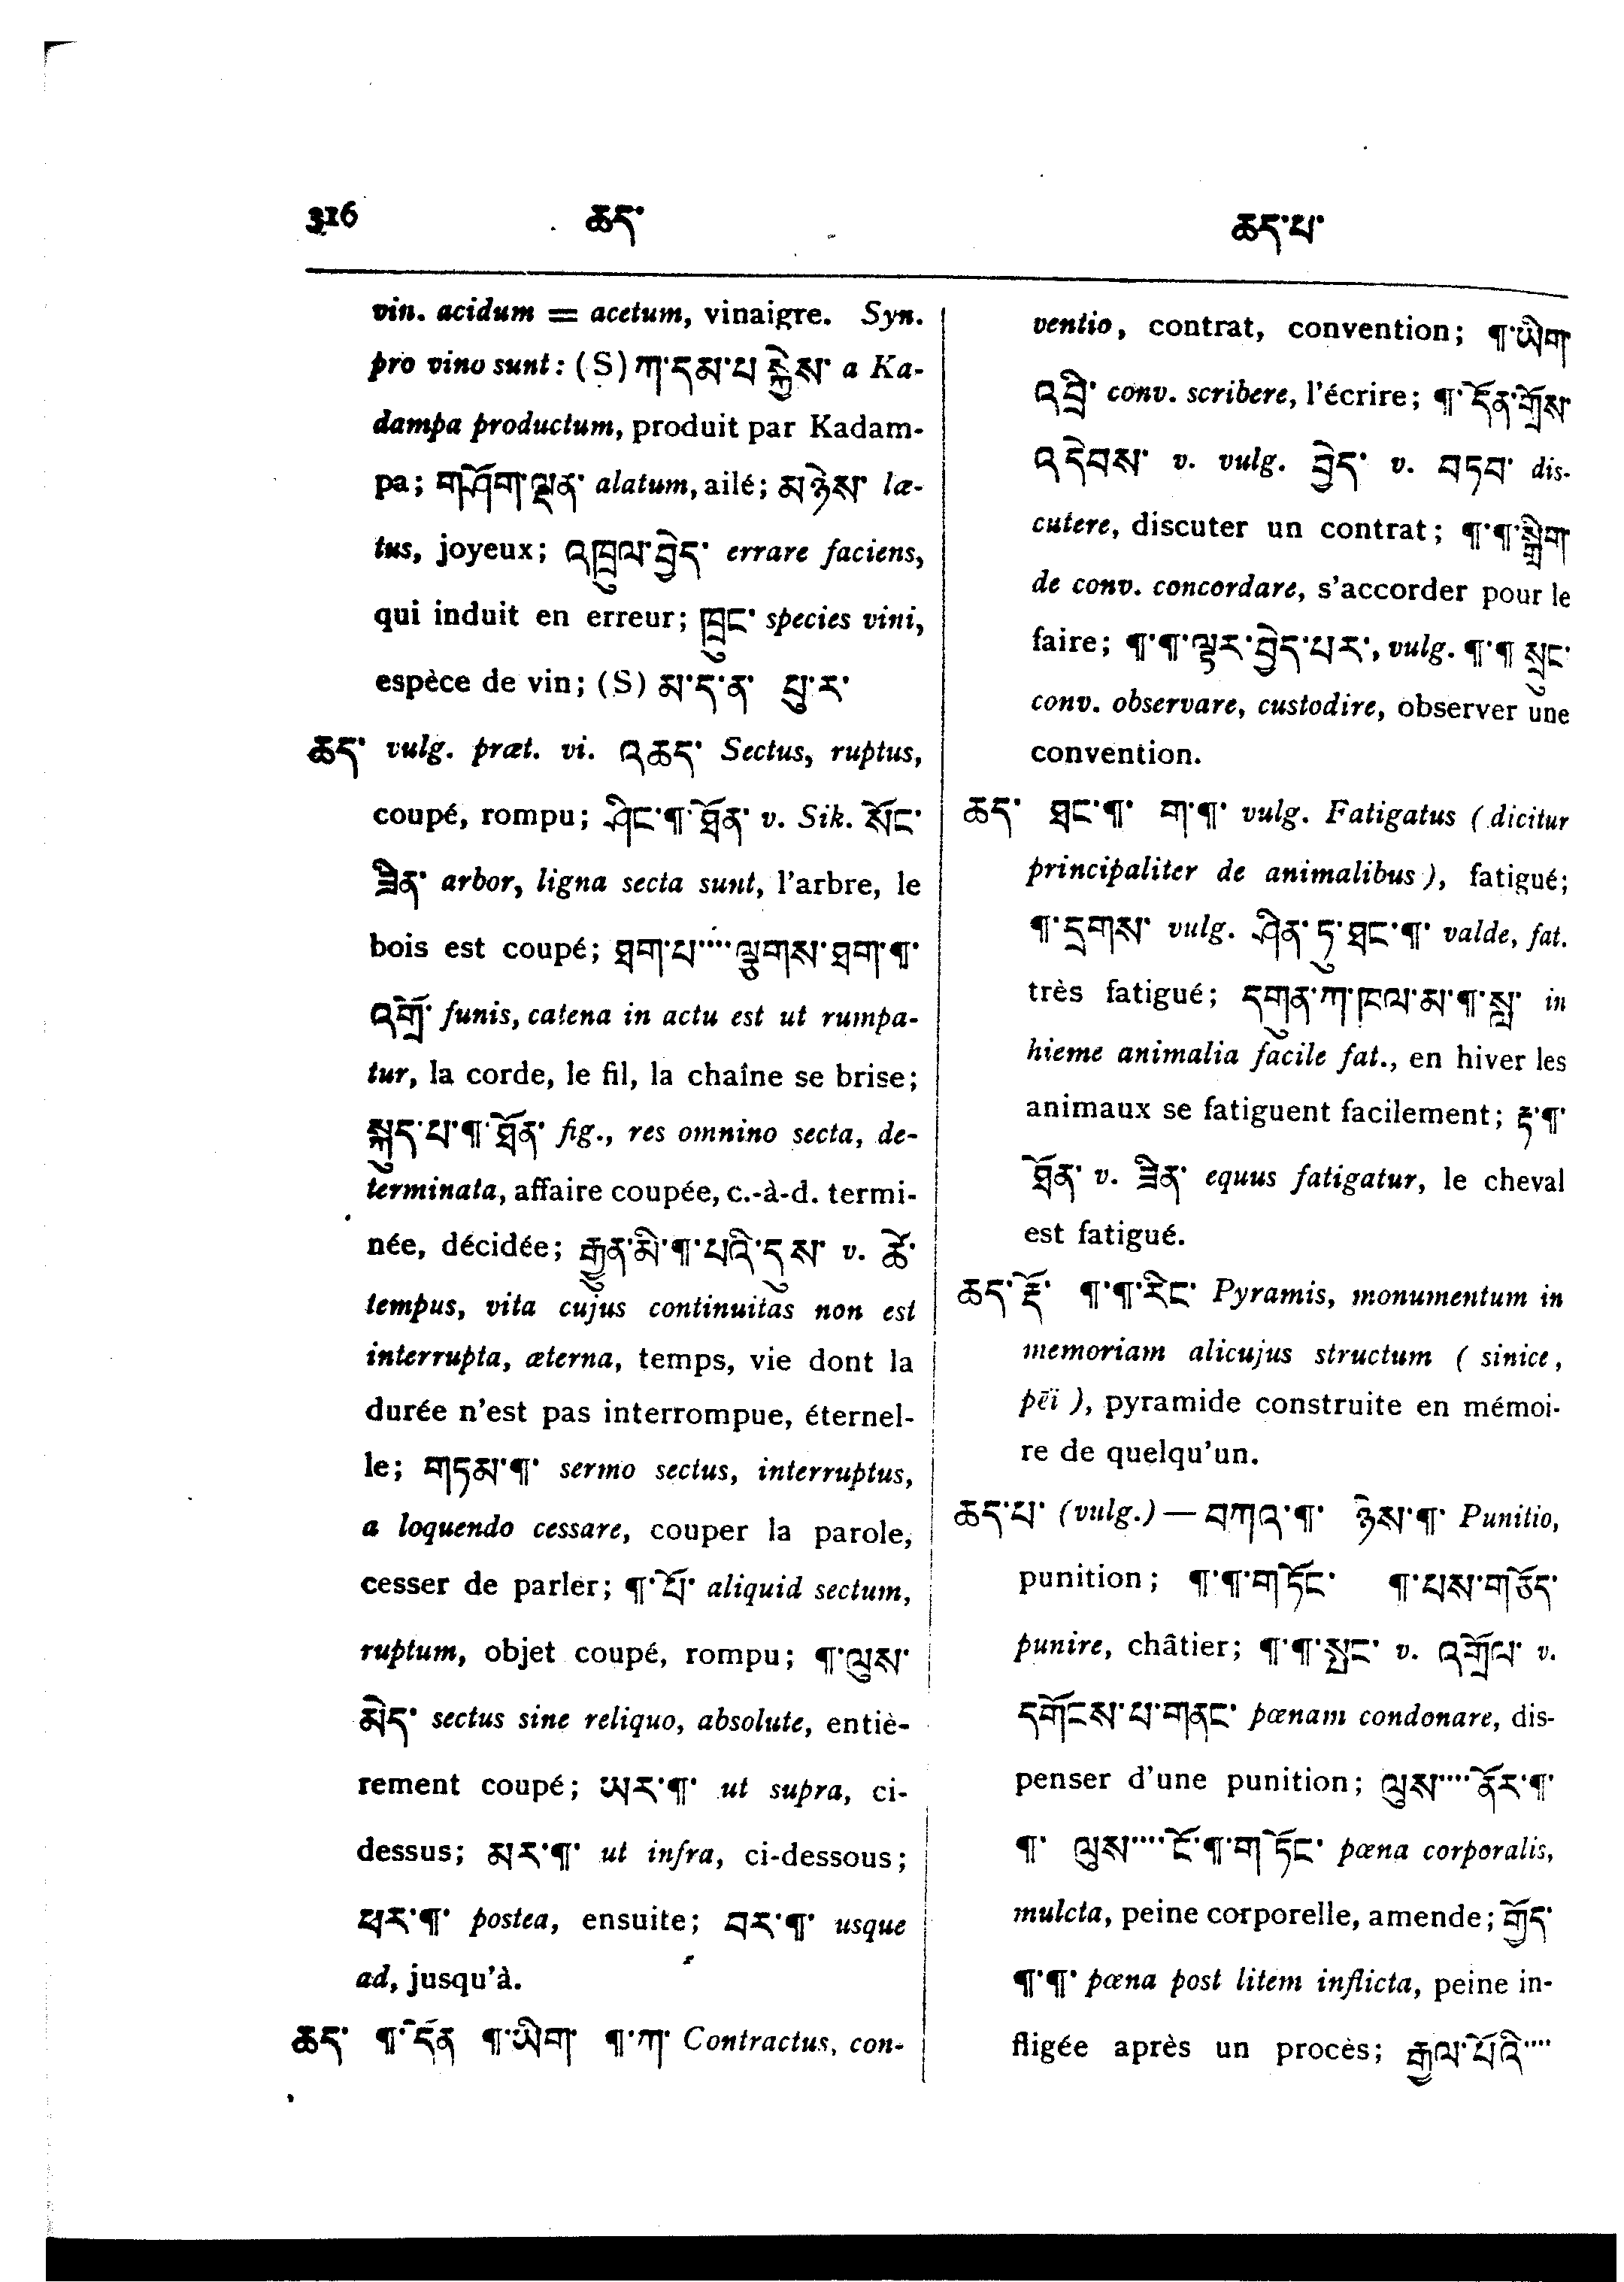 316
ཆད་
ཆད་པ་
vin. acidum = acetum, vinaigre. Syn.
pro vino sunt: (S) ཀ་དམ་པ སྐྱེས་ a Ka-
dampa productum, produit par Kadam-
pa; གཤོག་ལྡན་ alatum, ailé; མཉེས་ læ-
tus, joyeux; འཁྲུལ་བྱེད་ errare faciens,
qui induit en erreur; ཁྲུང་ species vini,
espèce de vin; (S) མ་ད་ན་ བུ་ར་
ཆད་ vulg. præt. vi. འཆད་ Sectus, ruptus,
coupé, rompu; ཤིང་¶་ཐོན་ v. Sik. སོང་
ཟིན་ arbor, ligna secta sunt, l'arbre, le
bois est coupé; ཐག་པ་....ལྕགས་ཐག་¶་
འགྲོ་ funis, catena in actu est ut rumpa-
tur, la corde, le fil, la chaîne se brise;
སྐུད་པ་¶་ཐོན་ fig., res omnino secta, de-
terminata, affaire coupée, c.-à-d. termi-
née, décidée; རྒྱུན་མི་¶་པའི་དུས་ v. ཚེ་
tempus, vita cujus continuitas non est
interrupta, æterna, temps, vie dont la
durée n'est pas interrompue, éternel-
le; གཏམ་¶་ sermo sectus, interruptus,
a loquendo cessare, couper la parole,
cesser de parler; ¶་པོ་ aliquid sectum,
ruptum, objet coupé, rompu; ¶་ལུས་
མེད་ sectus sine reliquo, absolute, entiè-
rement coupé; ཡར་¶་ ut supra, ci-
dessus; མར་¶་ ut infra, ci-dessous;
ཕར་¶་ postea, ensuite; བར་¶་ usque
ad, jusqu'à.
ཆད་ ¶་དོན ¶་ཡིག་ ¶་ཀ་ Contractus, con-
ventio, contrat, convention; ¶་ཡིག་
འབྲི་ conv. scribere, l'écrire; ¶་དོན་གྲོས་
འདེབས་ v. vulg. བྱེད་ v. བཏབ་ dis-
cutere, discuter un contrat; ¶་¶་སྒྲིག་
de conv. concordare, s'accorder pour le
faire; ¶་¶་ལྟར་བྱེད་པར་, vulg. ¶་¶ སྲུང་
conv. observare, custodire, observer une
convention.
ཆད་ ཐང་¶་ ག་¶་ vulg. Fatigatus (dicitur
principaliter de animalibus), fatigué;
¶་དྲགས་ vulg. ཤིན་ཏུ་ཐང་¶་ valde, fat.
très fatigué; དགུན་ཀ་ཁལ་མ་¶་སླ་ in
hieme animalia facile fat., en hiver les
animaux se fatiguent facilement; རྟ་¶་
ཐོན་ v. ཟིན་ equus fatigatur, le cheval
est fatigué.
ཆད་རྡོ་ ¶་¶་རིང་ Pyramis, monumentum in
memoriam alicujus structum (sinice,
pēi), pyramide construite en mémoi-
re de quelqu'un.
ཆད་པ་ (vulg.) — བཀའ་¶་ ཉེས་¶་ Punitio,
punition; ¶་¶་གཏོང་ ¶་པས་གཅོད་
punire, châtier; ¶་¶་སྤང་ v. འགྲོལ་ v.
དགོངས་པ་གནང་ pœnam condonare, dis-
penser d'une punition; ལུས་....ནོར་¶་
¶་ ལུས་....ངོ་¶་གཏོང་ pœna corporalis,
mulcta, peine corporelle, amende; གྱོད་
¶་¶་ pœna post litem inflicta, peine in-
fligée après un procès; རྒྱལ་པོའི་....